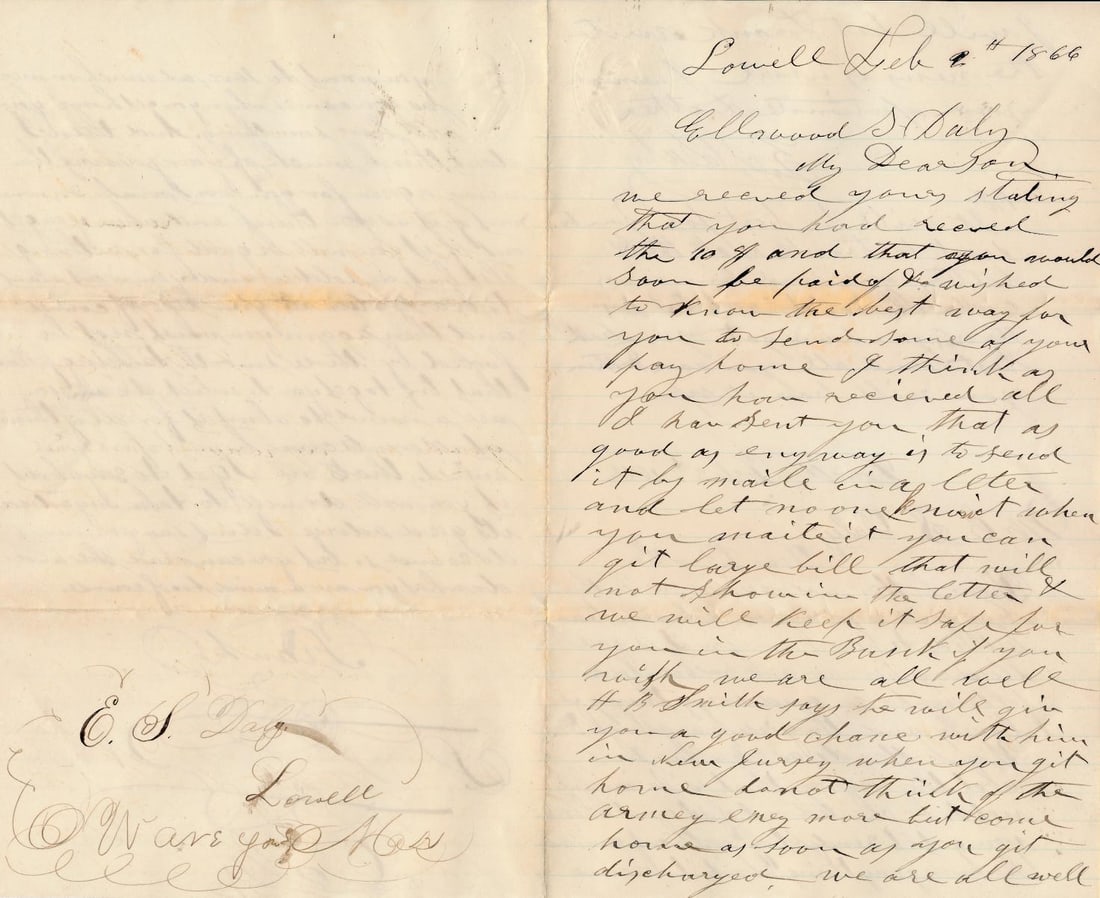 E. S. Daly
Lowell
Mas
Lowell Feb 9th 1866
Ellswood S Daly
My Dear Son
we receved yours stating
that you had receved
the 10 $ and that you would
soon be paid of & wished
to know the best way for
you to send some of your
pay home I think as
you hav recieved all
I hav sent you that as
good as eny way is to send
it by maile in a letter
and let no one know it when
you maile it you can
git large bill that will
not show in the letter &
we will keep it safe for
you in the Bank if you
wish we are all well
H B Smith says he will giv
you a good chane with him
in New Jursey when you git
home do not think of the
armey eney more but come
home as soon as you git
discharged we are all well